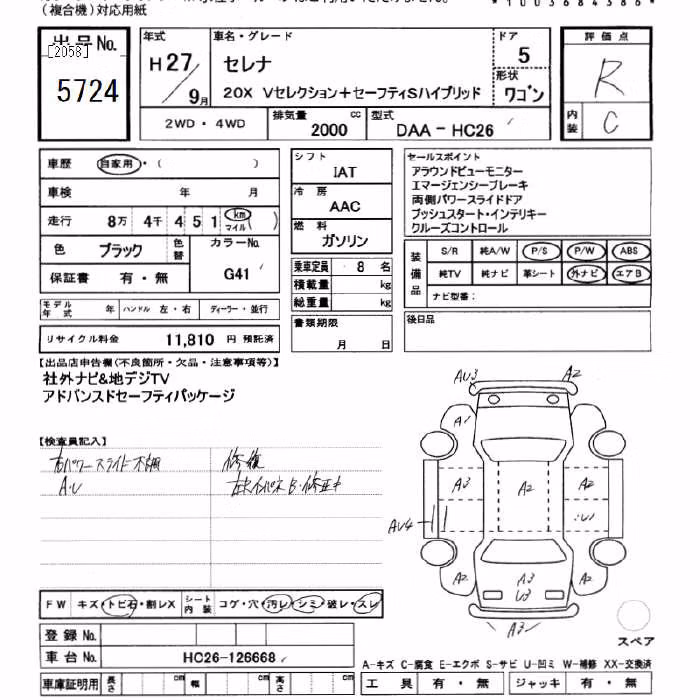 (複合機)対応用紙
*1003684386*
出品No.
[2058]
5724
年式
H27/9月
車名・グレード
セレナ
20X Vセレクション+セーフティSハイブリッド
ドア
5
形状
ワゴン
評価点
R
内装
C
2WD・4WD
排気量
2000
cc
型式
DAA-HC26
車歴
自家用・( )
車検 年 月
走行 8万 4千 4 5 1 km マイル ( )
色 ブラック
色替
カラーNo.
G41
保証書 有・無
モデル年式 年 ハンドル 左・右 ディーラー・並行
リサイクル料金 11,810 円 預託済
シフト
IAT
冷房
AAC
燃料
ガソリン
乗車定員 8 名
積載量 kg
総重量 kg
書類期限
月 日
セールスポイント
アラウンドビューモニター
エマージェンシーブレーキ
両側パワースライドドア
プッシュスタート・インテリキー
クルーズコントロール
装備品
S/R 純A/W P/S P/W ABS
純TV 純ナビ 革シート 外ナビ エアB
ナビ型番:
後日品
【出品店申告欄(不良箇所・欠品・注意事項等)】
社外ナビ&地デジTV
アドバンスドセーフティパッケージ
【検査員記入】
右パワースライド不調
A・U
修復
AU3
A2
A1
A3
A2
A2
AU4
A2
A3
U3
A2
A3
FW キズ・トビ石・割レX
シート内装
コゲ・穴・汚レ・シミ・破レ・スレ
登録No.
車台No.
HC26-126668
車庫証明用 長さ cm 幅 cm 高さ cm
スペア
A-キズ C-腐食 E-エクボ S-サビ U-凹ミ W-補修 XX-交換済
工具 有・無 ジャッキ 有・無